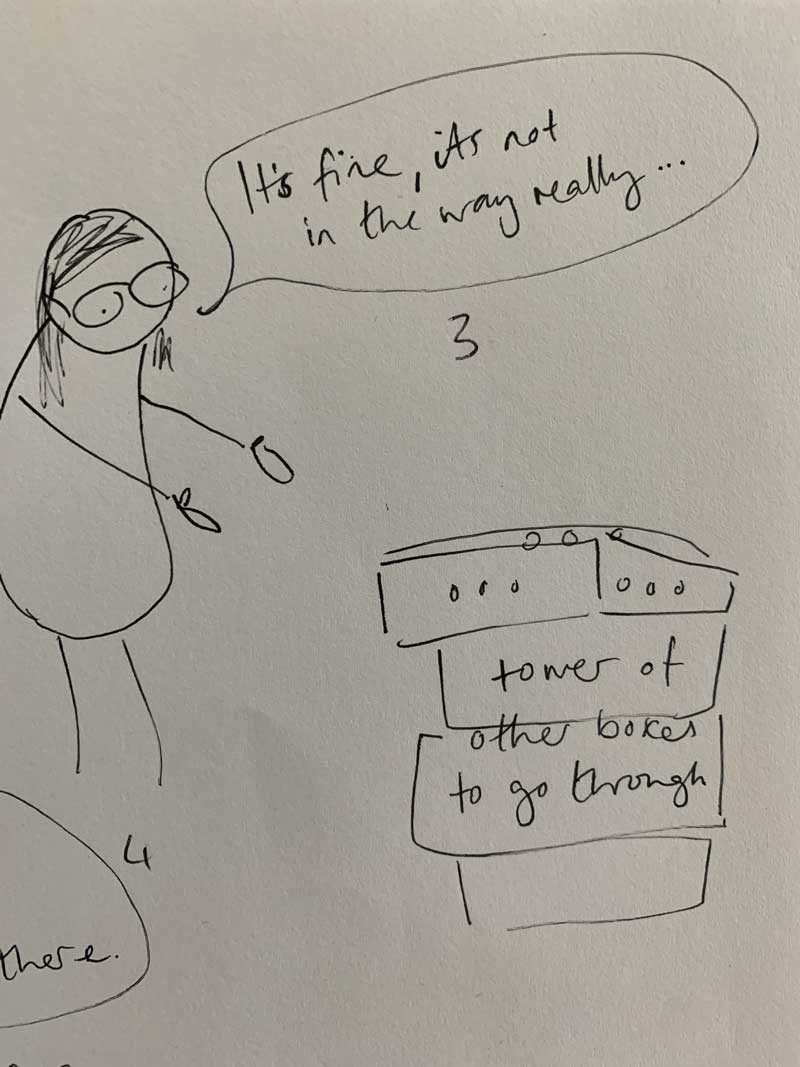 It's fine, its not
in the way really...
3
tower of
other boxes
to go through
4
there.